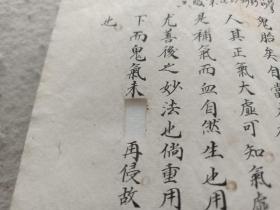 鬼胎矣自當
人其正氣大虛可知氣虛
是補氣而血自然生也用
尤善後之妙法也倘重用
下而鬼氣未 再侵故
也